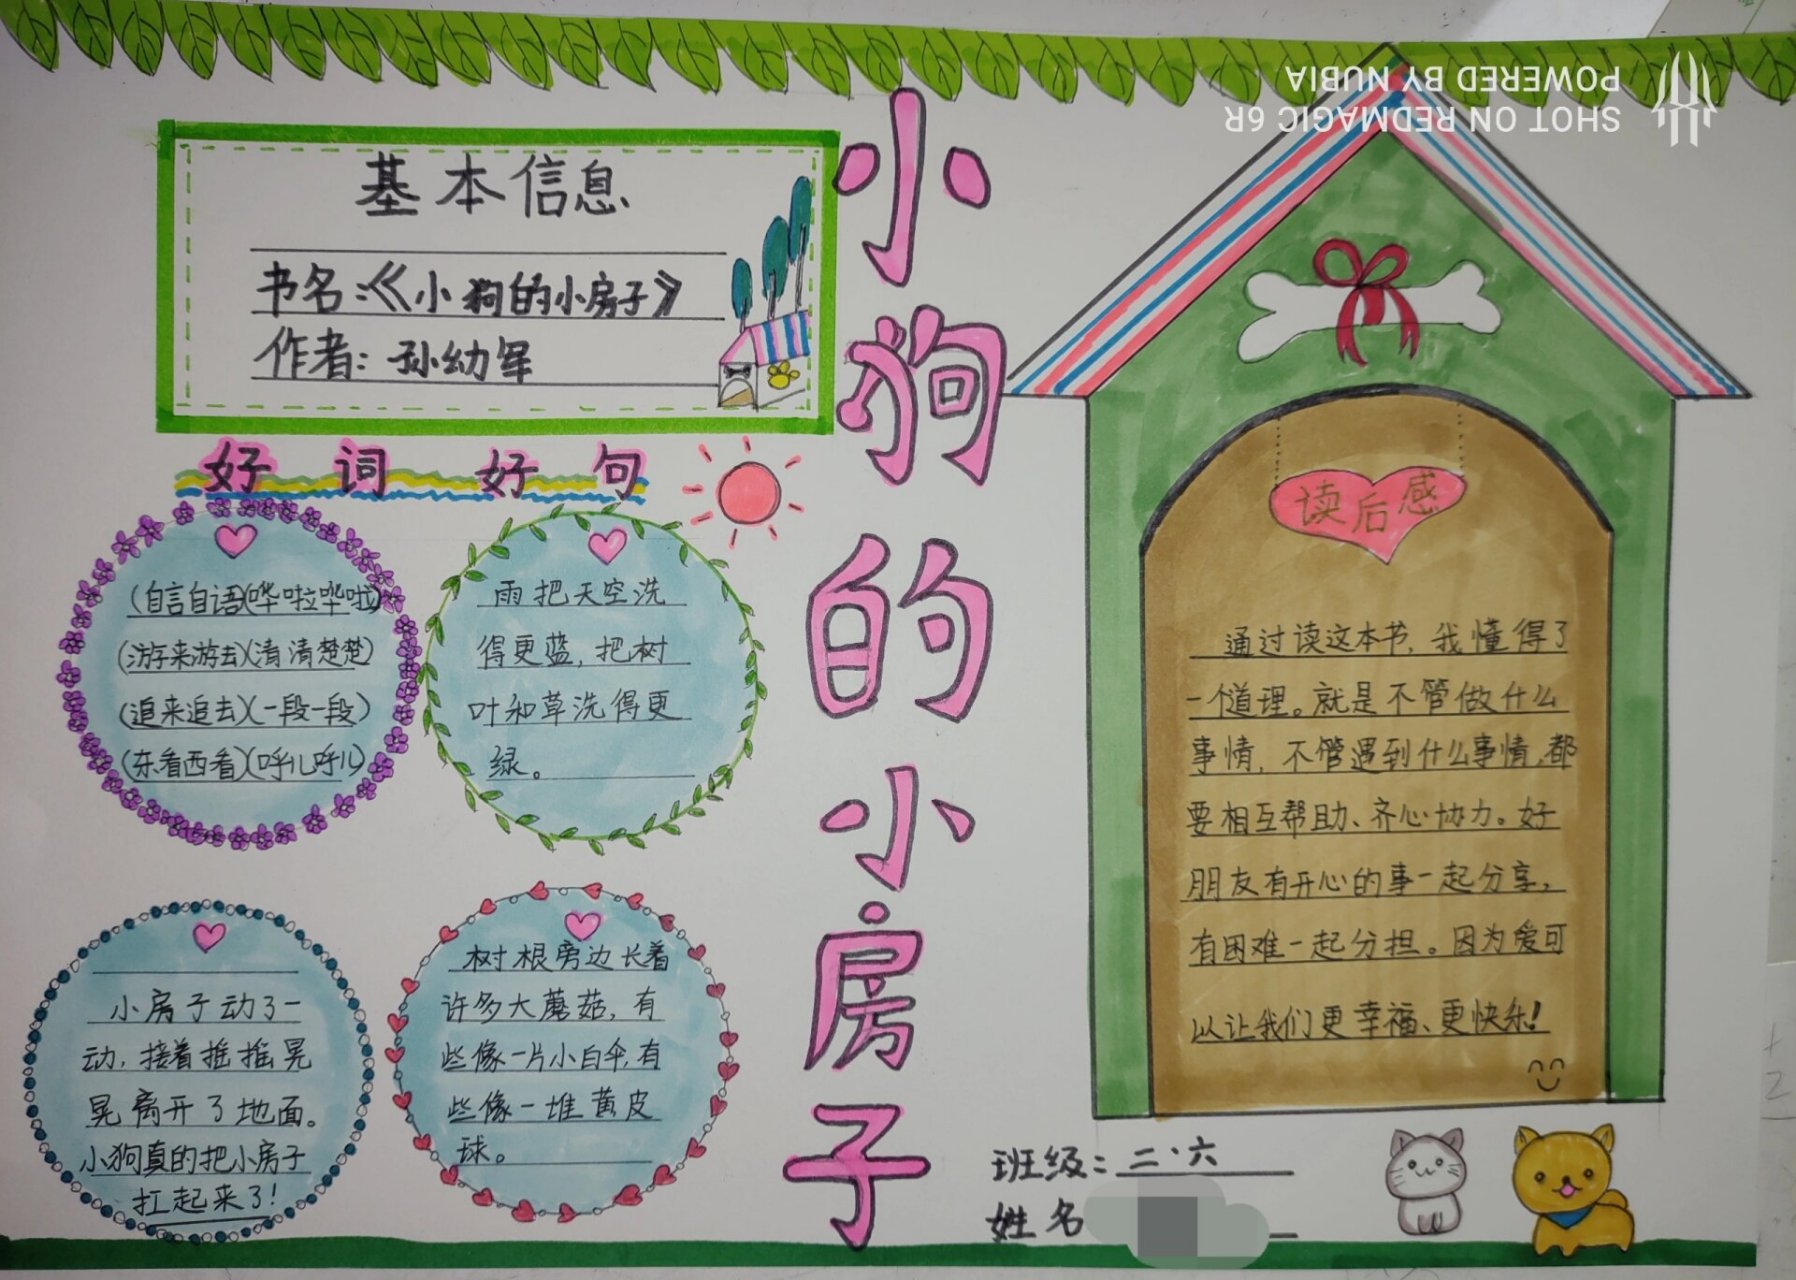 SHOT ON REDMAGIC 6R
POWERED BY NUBIA
小狗的小房子
基本信息
书名:《小狗的小房子》
作者:孙幼军
好词好句
(自言自语)(哗啦哗啦)
(游来游去)(清清楚楚)
(追来追去)(一段一段)
(东看西看)(呼儿呼儿)
雨把天空洗
得更蓝,把树
叶和草洗得更
绿。
小房子动了一
动,接着摇摇晃
晃离开了地面。
小狗真的把小房子
扛起来了!
树根旁边长着
许多大蘑菇,有
些像一片小白伞,有
些像一堆黄皮
球。
读后感
通过读这本书,我懂得了
一个道理。就是不管做什么
事情,不管遇到什么事情,都
要相互帮助、齐心协力。好
朋友有开心的事一起分享,
有困难一起分担。因为爱可
以让我们更幸福、更快乐!
班级:二·六
姓名